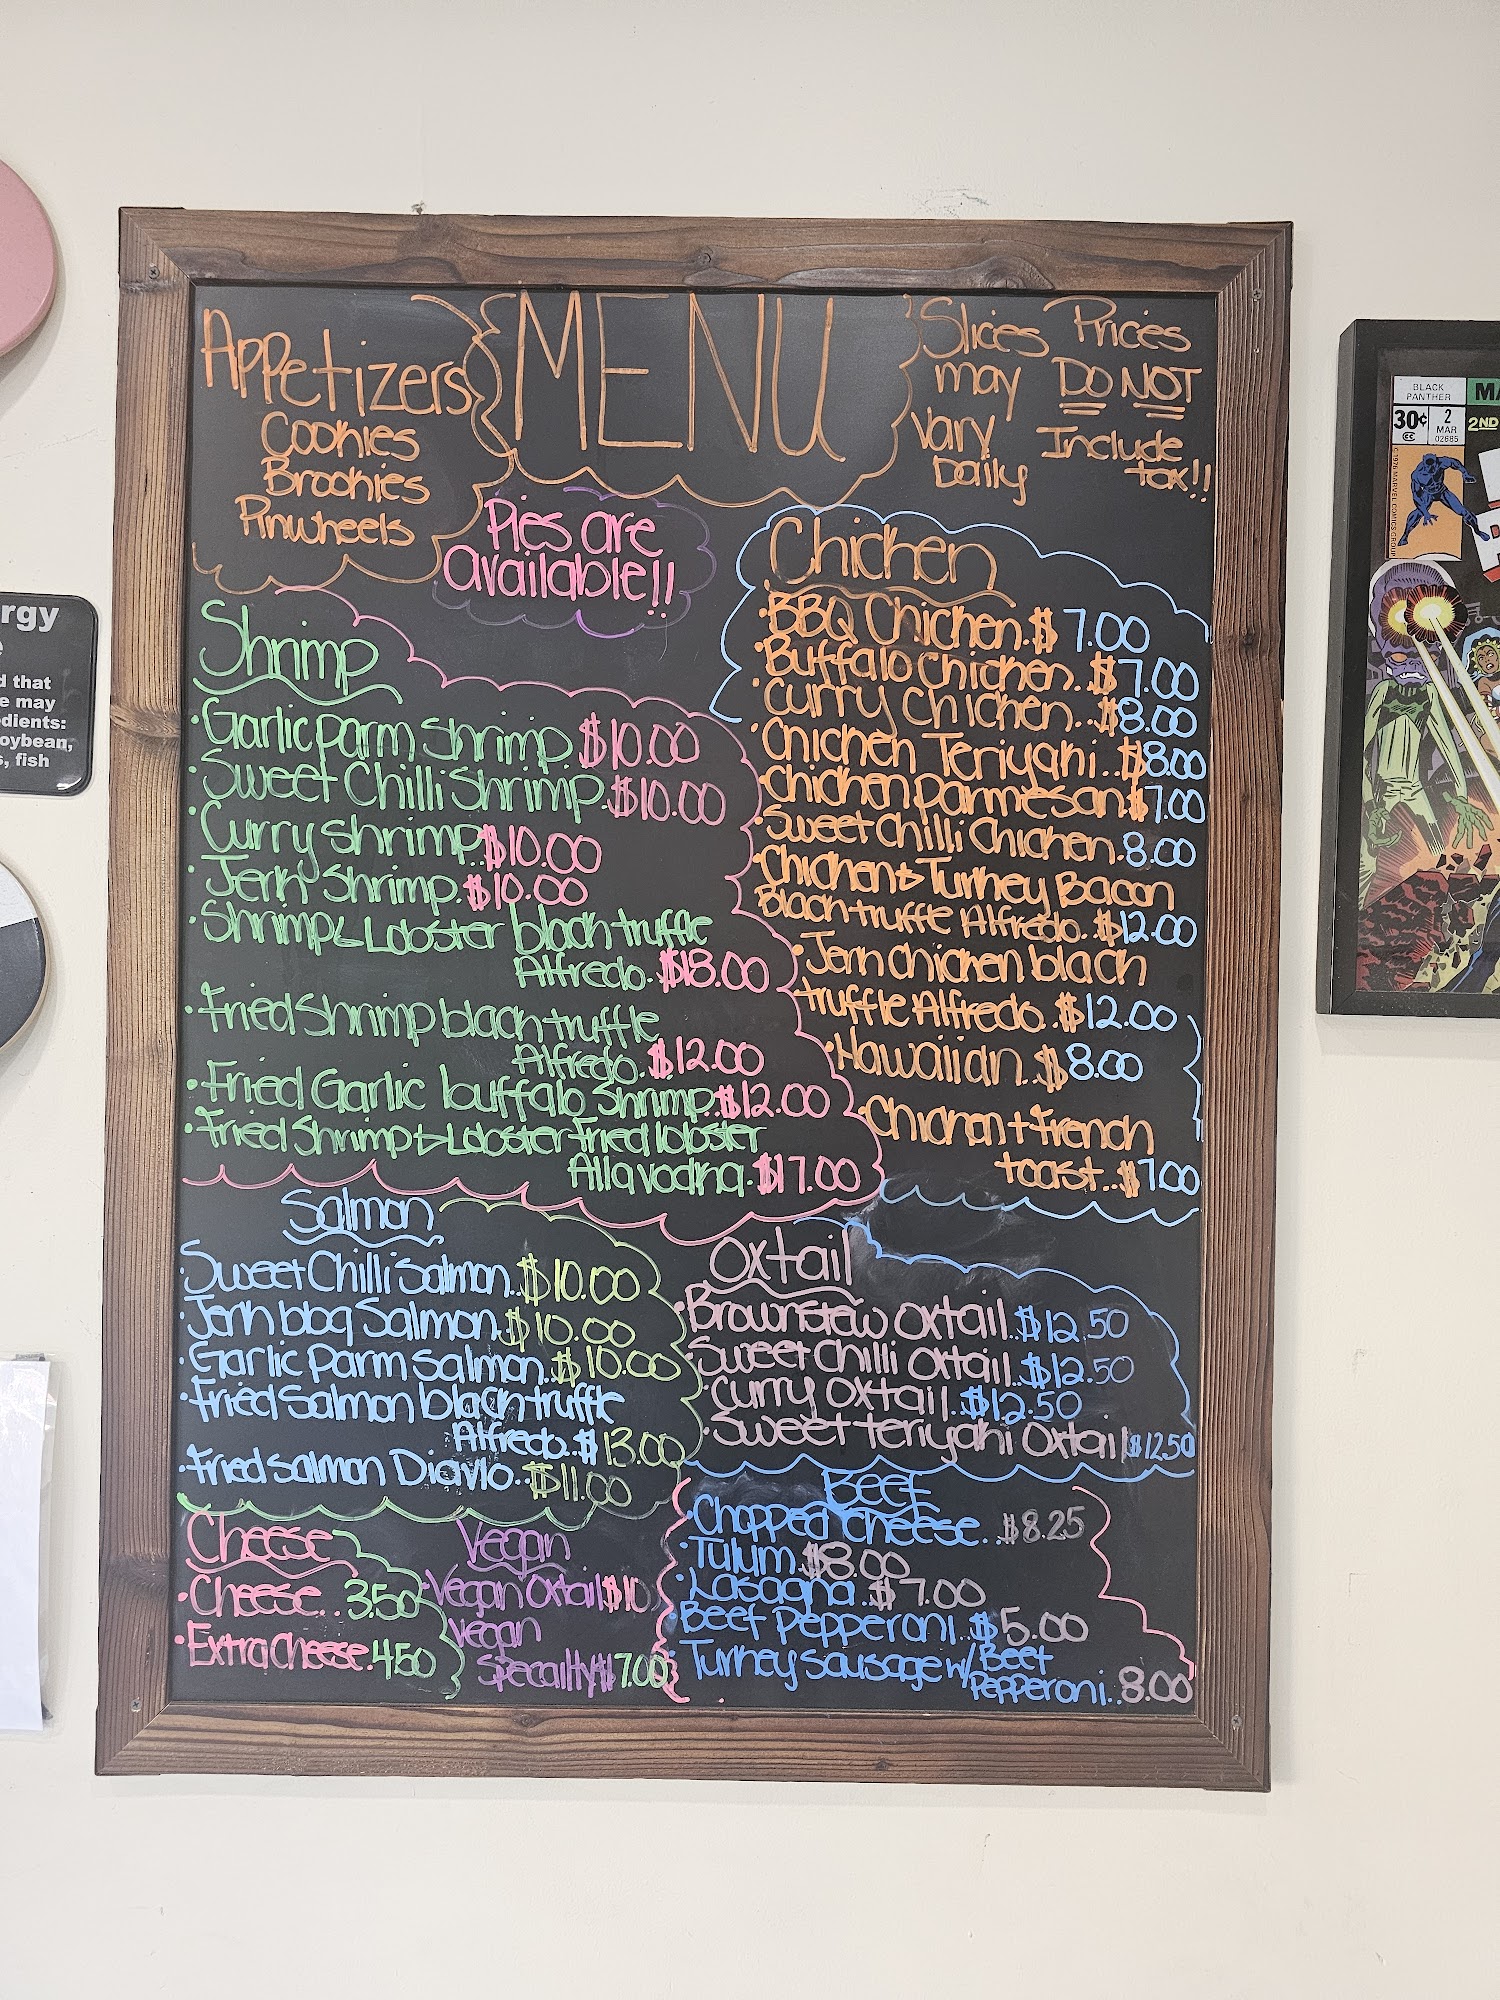 Appetizers
Cookies
Brookies
Pinwheels
MENU
Slices
may
Vary
Daily
Prices
DO NOT
Include
tax!!
Pies are
available!!
Shrimp
Garlic parm Shrimp. $10.00
Sweet Chilli Shrimp. $10.00
Curry shrimp. $10.00
Jerk Shrimp. $10.00
Shrimp & Lobster black truffle
Alfredo. $18.00
Fried Shrimp black truffle
Alfredo. $12.00
Fried Garlic buffalo Shrimp. $12.00
Fried Shrimp & Lobster Fried lobster
Alla vodka. $17.00
Chicken
BBQ Chicken. $7.00
Buffalo Chicken. $7.00
Curry Chicken.. $8.00
Chicken Teriyaki.. $8.00
Chicken parmesan $7.00
Sweet Chilli Chicken. 8.00
Chicken & Turkey Bacon
Black truffle Alfredo. $12.00
Jerk chicken black
truffle Alfredo.. $12.00
Hawaiian.. $8.00
Chicken + French
toast.. $7.00
Salmon
Sweet Chilli Salmon.. $10.00
Jerk bbq Salmon. $10.00
Garlic Parm Salmon.. $10.00
Fried Salmon black truffle
Alfredo.. $13.00
Fried salmon Diavlo.. $11.00
Oxtail
Brownstew oxtail.. $12.50
Sweet Chilli Oxtail.. $12.50
Curry oxtail. $12.50
Sweet teriyaki Oxtail $12.50
Cheese
Cheese.. 3.50
Extra Cheese. 4.50
Vegan
Vegan Oxtail $10
Vegan
Specailty $7.00
Beef
Chopped cheese.. $8.25
Tulum. $8.00
Lasagna. $7.00
Beef Pepperoni.. $5.00
Turkey sausage w/ Beef
Pepperoni.. 8.00
rgy
e
d that
e may
edients:
oybean,
s, fish
BLACK
PANTHER
30¢
2
MAR
02685
CC
MA
2ND